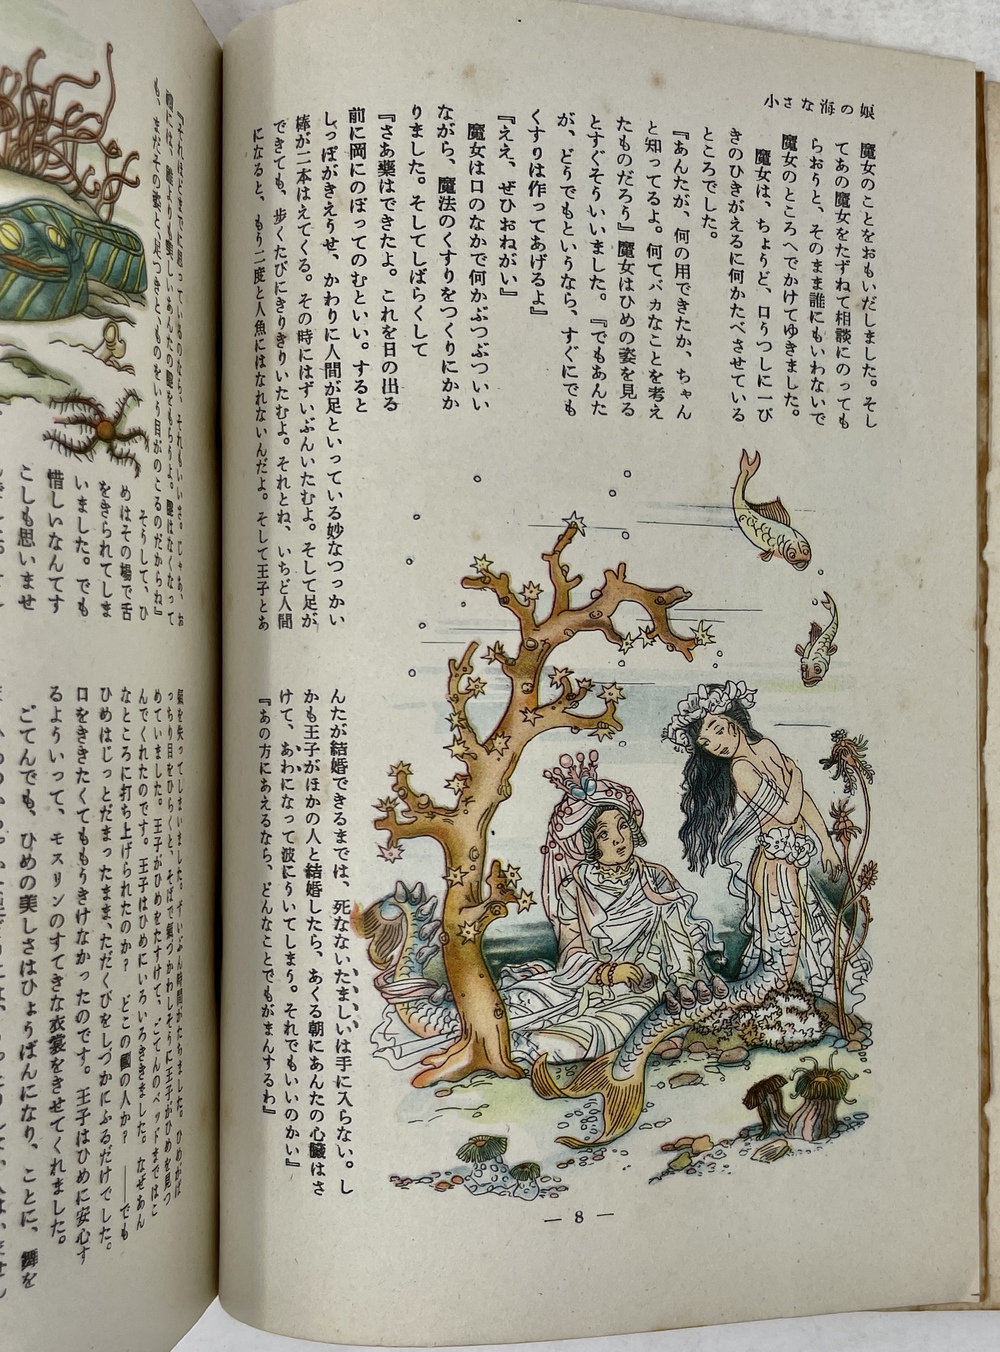 小さな海の娘
魔女のことをおもいだしました。そし
てあの魔女をたずねて相談にのっても
らおうと、そのまま誰にもいわないで
魔女のところへでかけてゆきました。
魔女は、ちょうど、口うつしに一ぴ
きのひきがえるに何かたべさせている
ところでした。
『あんたが、何の用できたか、ちゃん
と知ってるよ。何てバカなことを考え
たものだろう』魔女はひめの姿を見る
とすぐそういいました。『でもあんた
が、どうでもというなら、すぐにでも
くすりは作ってあげるよ』
『ええ、ぜひおねがい』
魔女は口のなかで何かぶつぶついい
ながら、魔法のくすりをつくりにかか
りました。そしてしばらくして
『さあ藥はできたよ。これを日の出る
前に岡にのぼってのむといい。すると
しっぽがきえうせ、かわりに人間が足といっている妙なつっかい
棒が二本はえてくる。その時にはずいぶんいたむよ。そして足が
できても、歩くたびにきりきりいたむよ。それとね、いちど人間
になると、もう二度と人魚にはなれないんだよ。そして王子とあ
んたが結婚できるまでは、死なないたましいは手に入らない。し
かも王子がほかの人と結婚したら、あくる朝にあんたの心臟はさ
けて、あわになって波にういてしまう。それでもいいのかい』
『あの方にあえるなら、どんなことでもがまんするわ』
— 8 —
も、まだその姿と足つきとものをいう目がのこるのだからね』
そうして、ひ
めはその場で舌
をきられてしま
いました。でも
惜しいなんてす
こしも思いませ
氣を失ってしまいました。ずいぶん時間がたちました。ひめがぱ
っちり目をひらくと、そばで氣づかわしそうに王子がひめを見つ
めていました。王子がひめをたすけて、ごてんのベッドまではこ
んでくれたのです。王子はひめにいろいろききました。なぜあん
なところに打ち上げられたのか？ どこの國の人か？ ——でも
ひめはじっとだまったまま、ただくびをしづかにふるだけでした。
口をききたくてももうきけなかったのです。王子はひめに安心す
るよういって、モスリンのすてきな衣裳をきせてくれました。
ごてんでも、ひめの美しさはひょうばんになり、ことに、舞を